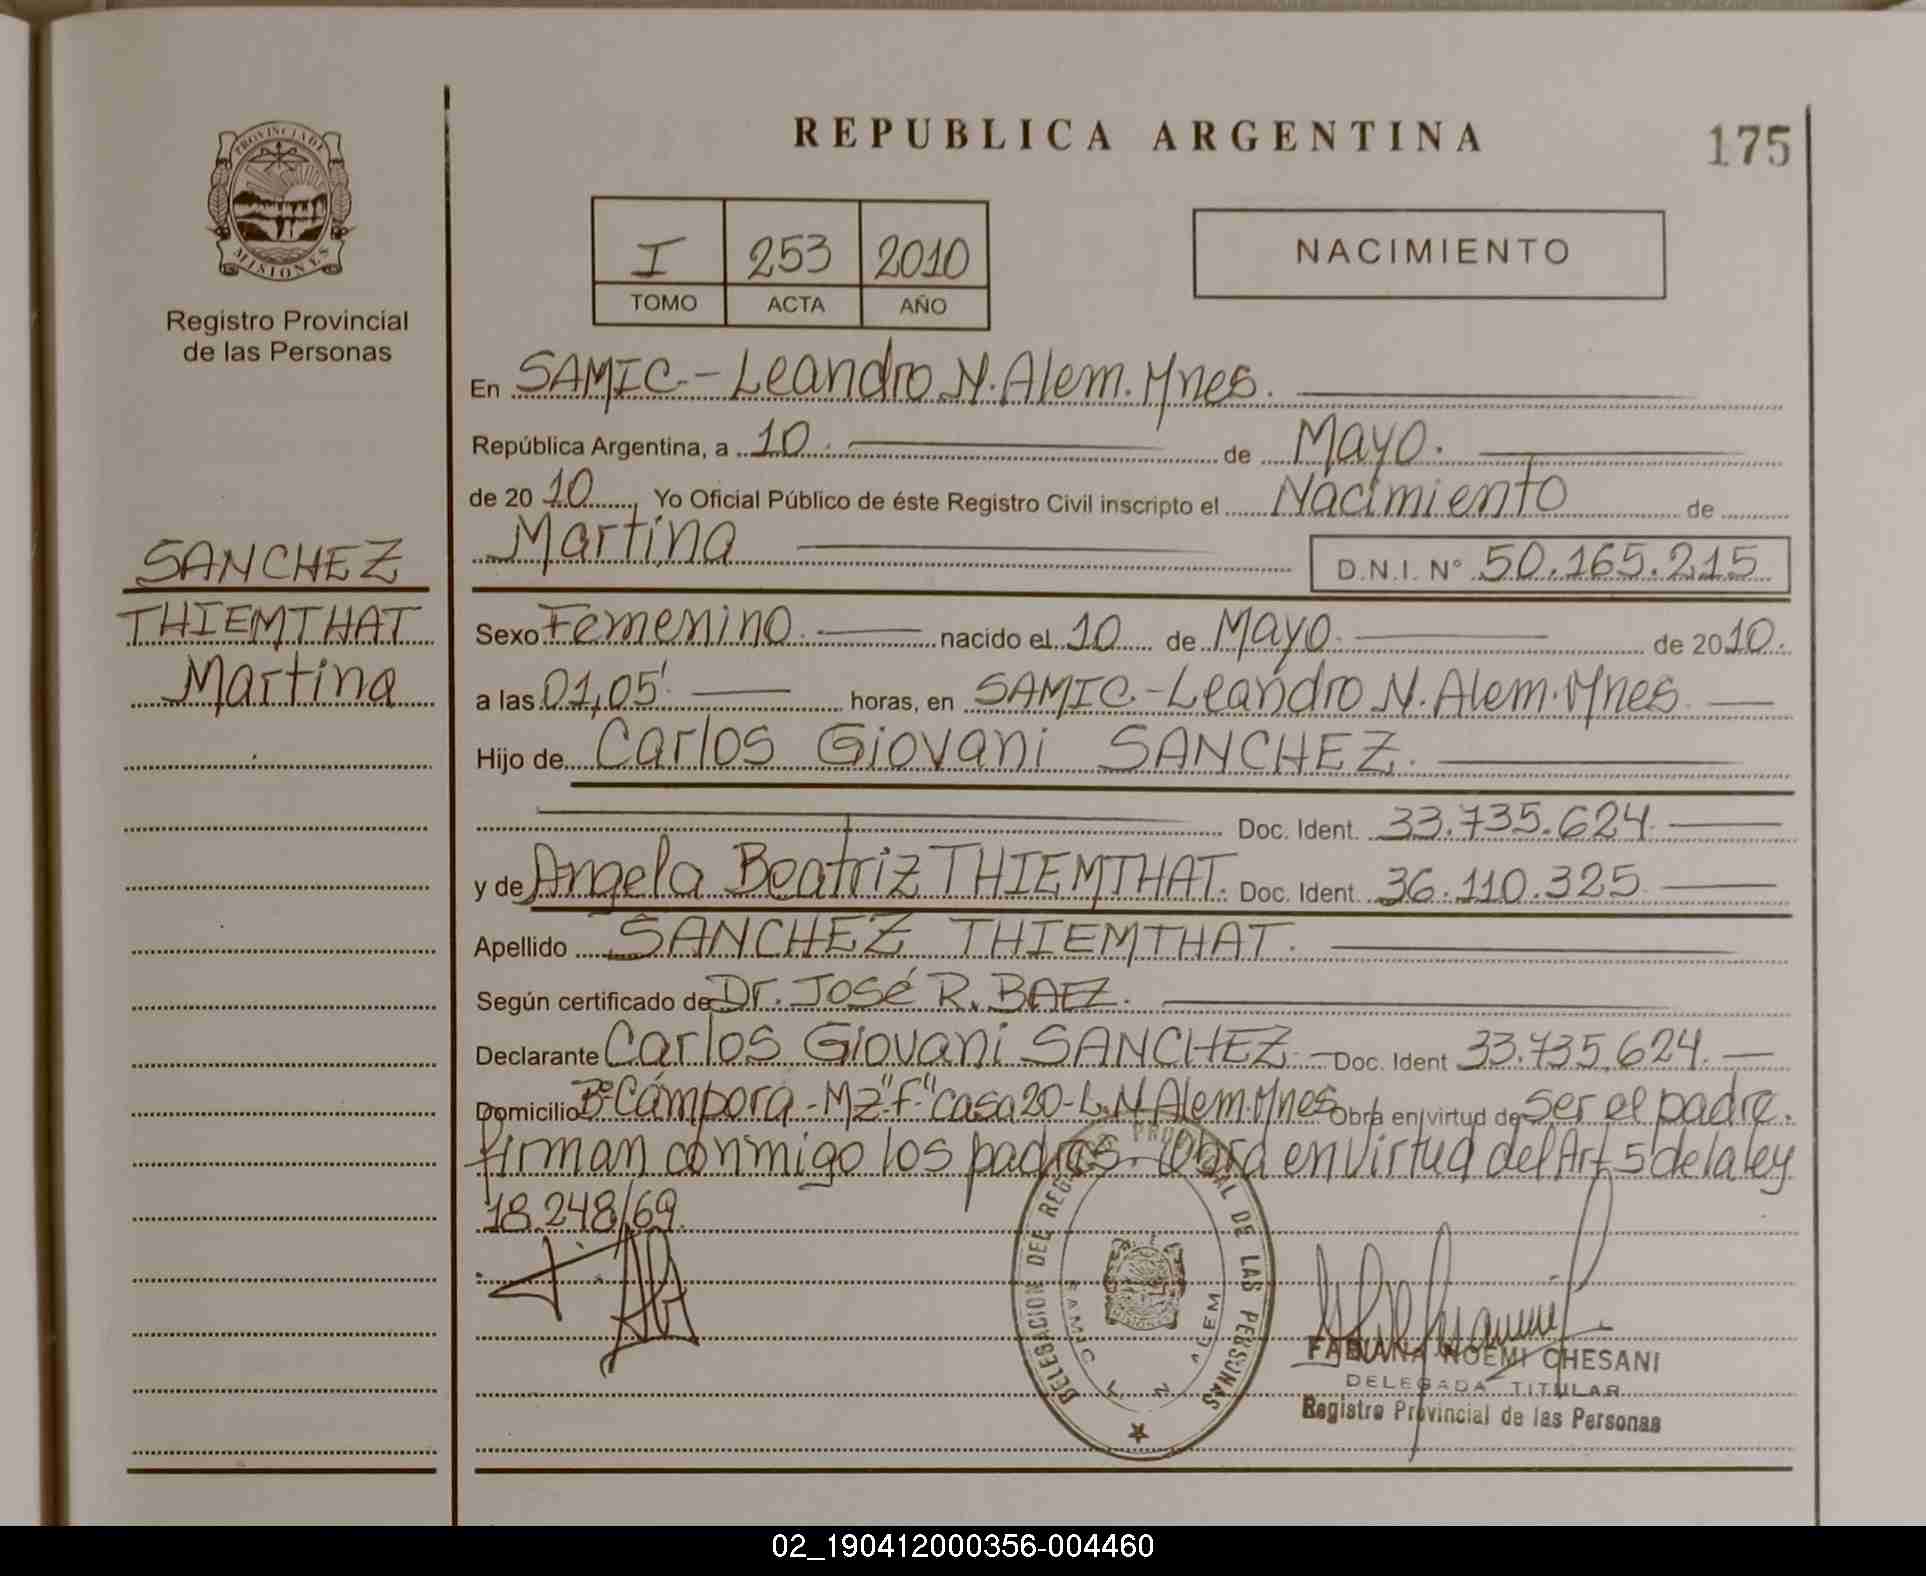 REPUBLICA ARGENTINA
175
PROVINCIA DE
MISIONES
Registro Provincial
de las Personas
I 253 2010
TOMO ACTA AÑO
NACIMIENTO
En SAMIC.- Leandro N. Alem. Mnes.
República Argentina, a 10. de Mayo.
de 20 10 Yo Oficial Público de éste Registro Civil inscripto el Nacimiento de
Martina D.N.I. N° 50.165.215
SANCHEZ
THIEMTHAT
Martina
Sexo Femenino. nacido el 10 de Mayo. de 2010.
a las 01,05' horas, en SAMIC.- Leandro N. Alem. Mnes.
Hijo de Carlos Giovani SANCHEZ.
Doc. Ident. 33.735.624.
y de Angela Beatriz THIEMTHAT. Doc. Ident. 36.110.325
Apellido SANCHEZ THIEMTHAT.
Según certificado de Dr. José R. BAEZ.
Declarante Carlos Giovani SANCHEZ.- Doc. Ident 33.735.624.
Domicilio B° Cámpora - Mz "F" casa 20 - L.N. Alem. Mnes Obra en virtud de ser el padre.
firman conmigo los padres. Obra en virtud del Art 5 de la ley
18.248/69.
DELEGACION DEL REGISTRO PROVINCIAL DE LAS PERSONAS
SAMIC L N ALEM
FABIANA NOEMI CHESANI
DELEGADA TITULAR
Registro Provincial de las Personas
02_190412000356-004460